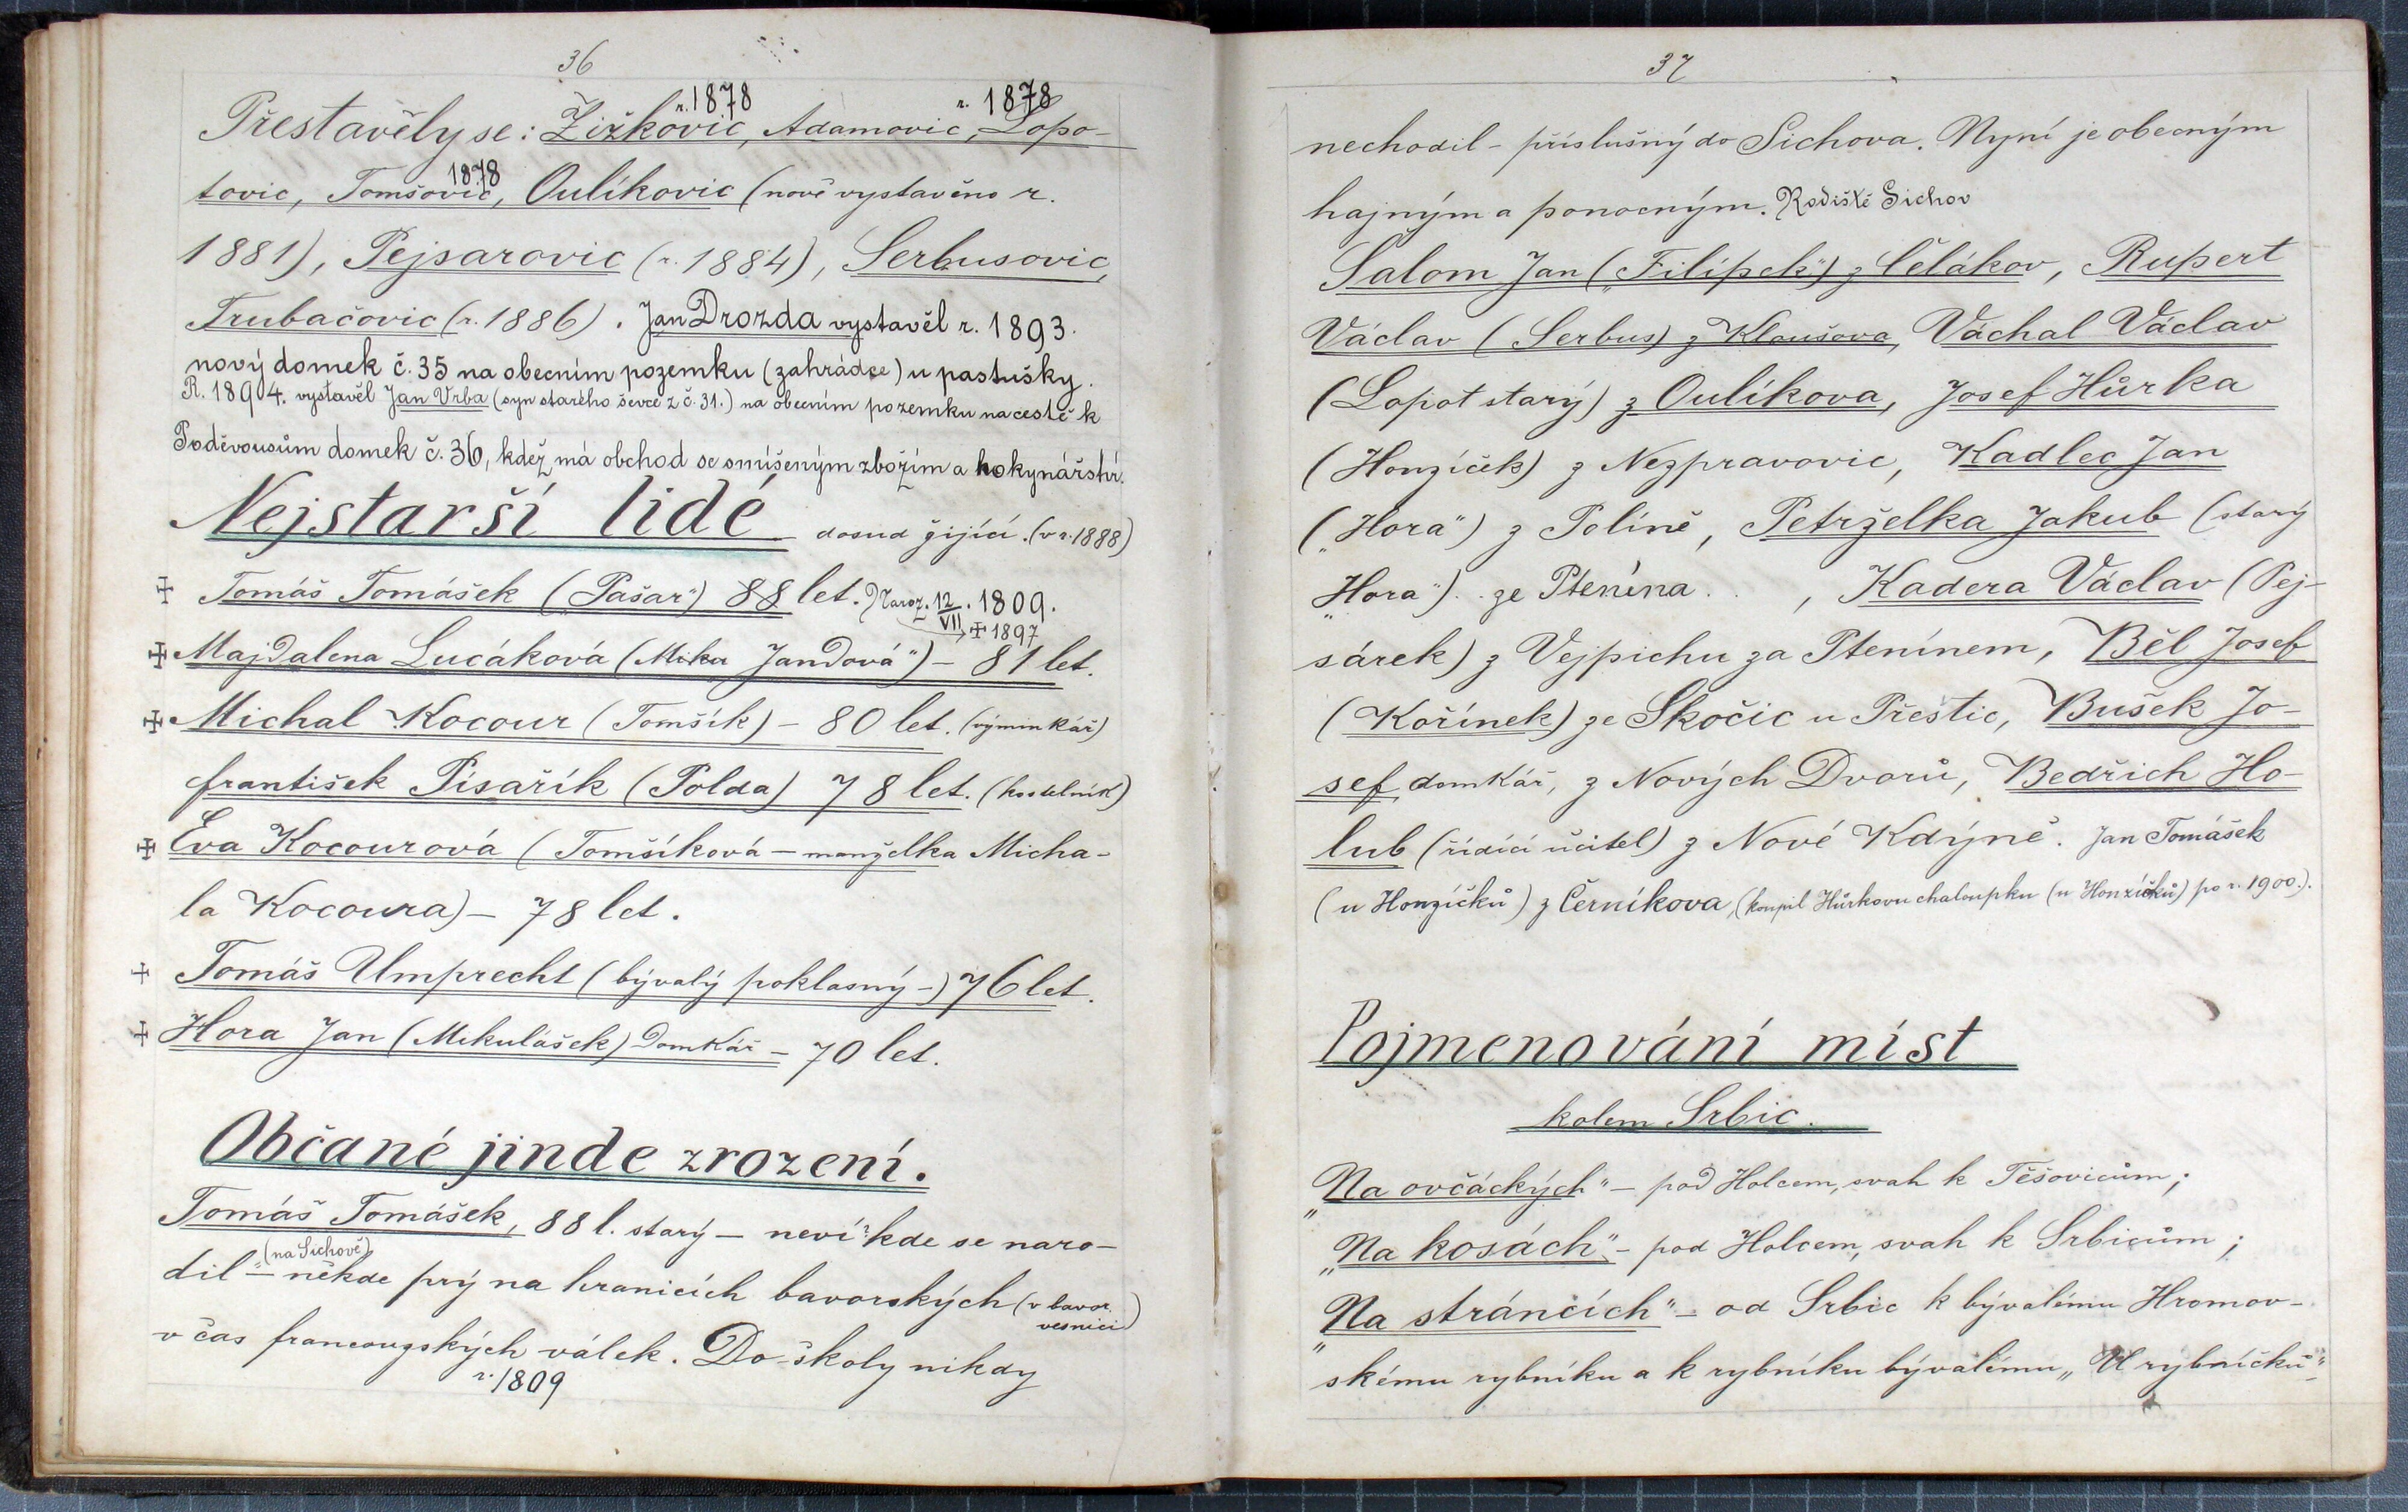 36
r. 1878 r. 1878
Přestavěly se: Žižkovic, Adamovic, Lopo-
1878
tovic, Tomšovic, Oulíkovic (nově vystavěno r.
1881), Pejsarovic (r. 1884), Serbusovic,
Trubačovic (r. 1886). Jan Drozda vystavěl r. 1893.
nový domek č. 35 na obecním pozemku (zahrádce) u pastušky.
R. 1894. vystavěl Jan Vrba (syn starého ševce z č. 31.) na obecním pozemku na cestě k
Poděvousům domek č. 36, kdež má obchod se smíšeným zbožím a hokynářství.
Nejstarší lidé dosud žijící. (v r. 1888)
Tomáš Tomášek („Pašar“) 88 let. Naroz. 12/VII. 1809.
✠ 1897
✠ Majdalena Lucáková (Mika Jandová“) – 81 let.
✠ Michal Kocour (Tomšík) – 80 let. (výminkář)
František Písařík (Polda) 78 let. (kostelník)
✠ Eva Kocourová (Tomšíková – manželka Micha-
la Kocoura) – 78 let.
✠ Tomáš Umprecht (bývalý poklasný –) 76 let.
✠ Hora Jan (Mikulášek) Domkář – 70 let.
Občané jinde zrození.
Tomáš Tomášek, 88 l. starý – neví kde se naro-
(na Sichově)
dil – někde prý na hranicích bavorských (v bavor. vesnici)
v čas francouzských válek. Do školy nikdy
r. 1809
37
nechodil – příslušný do Sichova. Nyní je obecným
hajným a ponocným. Rodiště Sichov
Šalom Jan („Filípek“) z Čelákov, Rupert
Václav (Serbus) z Kloušova, Váchal Václav
(Lopot starý) z Oulíkova, Josef Hůrka
(Honzíček) z Nezpravovic, Kadlec Jan
(„Hora“) z Políně, Petrželka Jakub (starý
„Hora“) . ze Ptenína . . , Kadera Václav (Pej-
sárek) z Vejpichu za Ptenínem, Běl Josef
(Kořínek) ze Skočic u Přeštic, Bušek Jo-
sef domkář, z Nových Dvorů, Bedřich Ho-
lub (řídící učitel) z Nové Kdýně. Jan Tomášek
(u Honzíčků) z Černíkova, (koupil Hůrkovu chaloupku (u Honzíčků) po r. 1900.).
Pojmenování míst
kolem Srbic.
„Na ovčáckých“ – pod Holcem, svah k Těšovicům;
„Na kosách“ – pod Holcem, svah k Srbicům;
„Na stráncích“ – od Srbic k bývalému Hromov-
skému rybníku a k rybníku bývalému „U rybníčků“